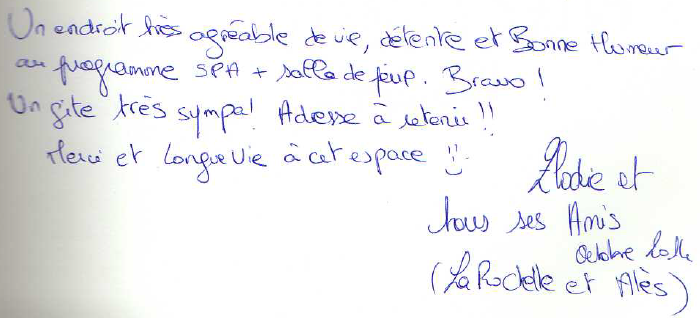 Un endroit très agréable de vie, détente et Bonne Humeur
au programme SPA + salle de jeux. Bravo !
Un gite très sympa! Adresse à retenir !!
Merci et Longue Vie à cet espace !!
Elodie et
tous ses Amis
Octobre
(La Rochelle et Alès)